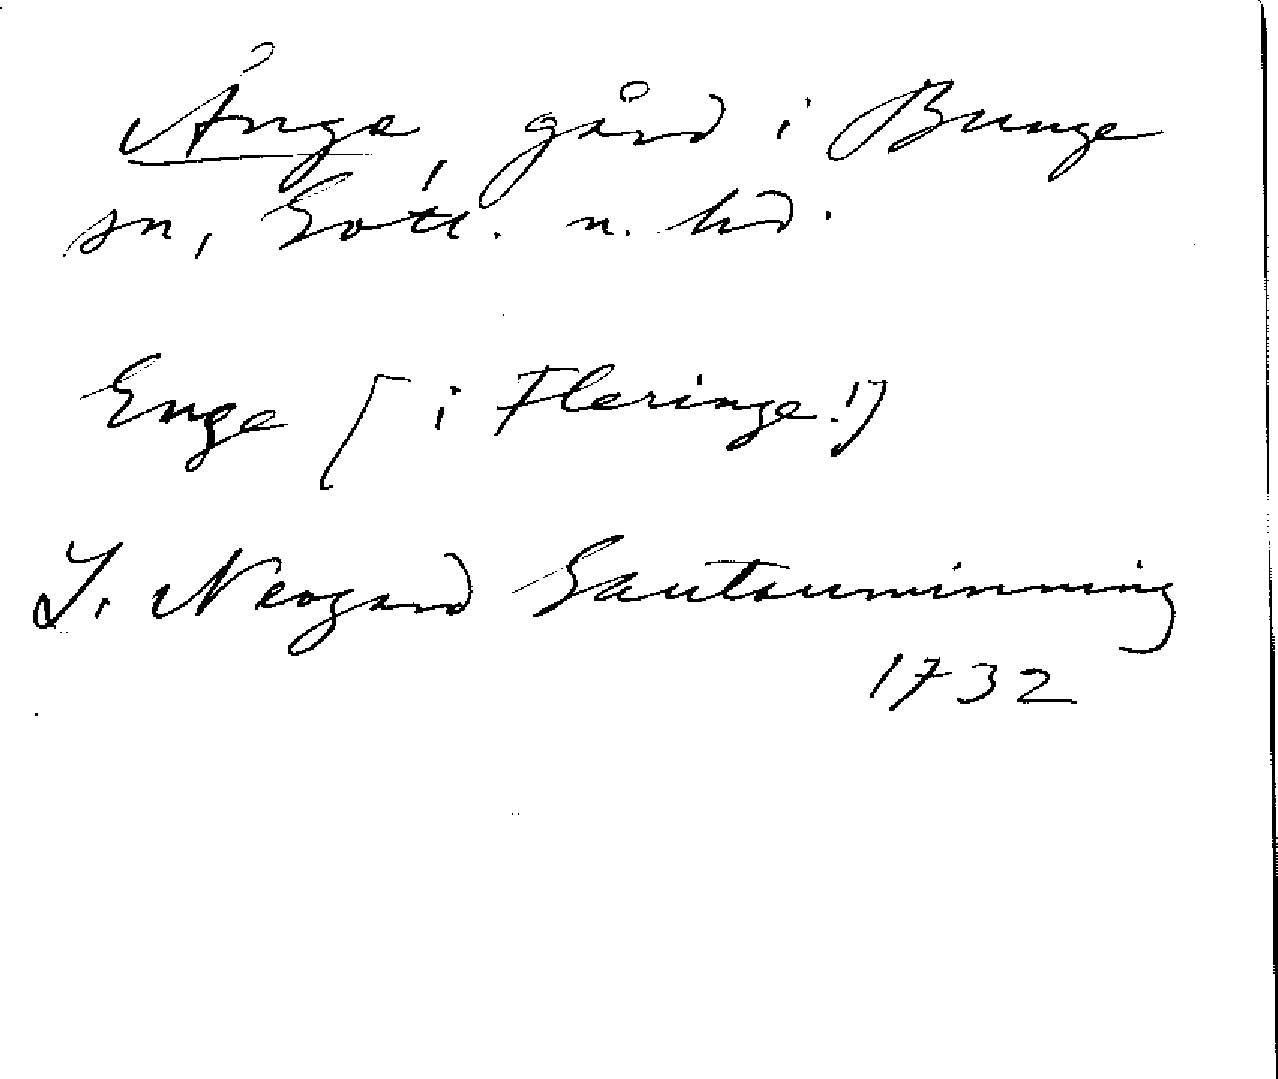 Ånge, gård i Bunge
sn, Gotl. n. hd.
Enge [i Fleringe!]
J. Neogard Gautauminning
1732